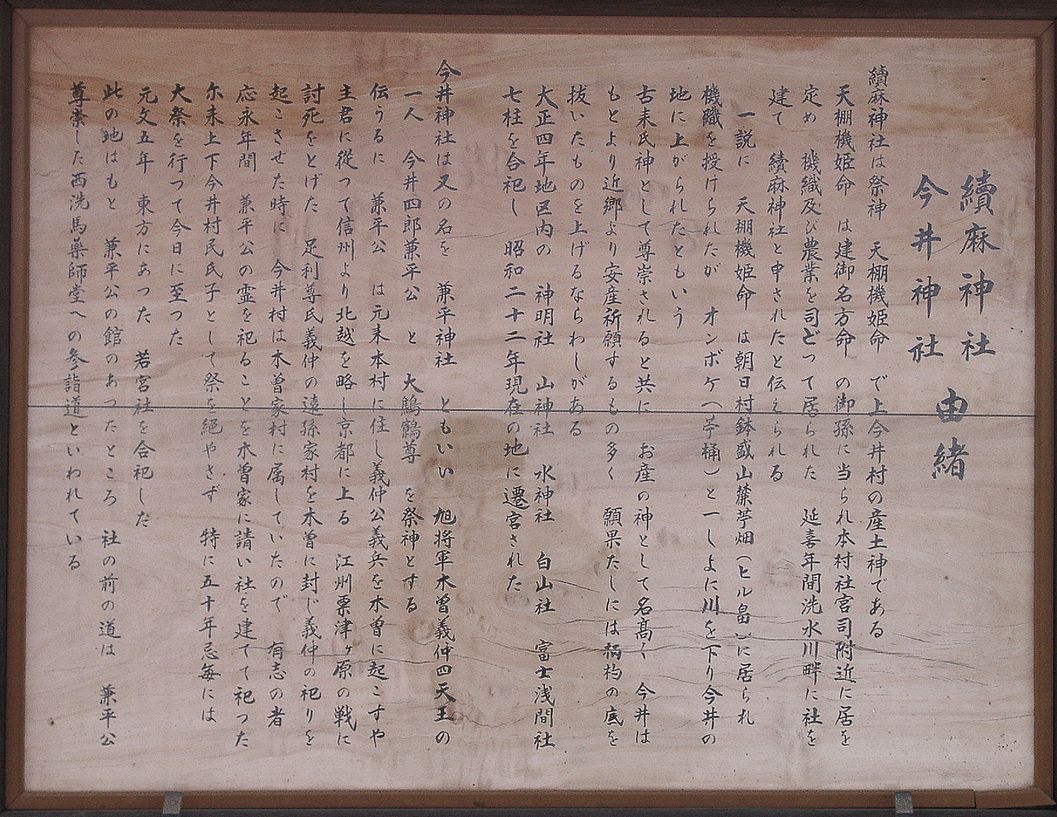 續麻神社
今井神社
由緒
續麻神社は祭神 天棚機姫命 で上今井村の産土神である
天棚機姫命 は建御名方命 の御孫に当られ本村社宮司附近に居を
定め 機織及び農業を司どって居られた 延喜年間洗水川畔に社を
建て 續麻神社と申されたと伝えられる
一説に 天棚機姫命 は朝日村鉢盛山麓苧畑(ヒル畠)に居られ
機織を授けられたが オンボケ(苧桶)と一しよに川を下り今井の
地に上がられたともいう
古来氏神として尊崇されると共に お産の神として名高く 今井は
もとより近郷より安産祈願するもの多く 願果たしには柄杓の底を
抜いたものを上げるならわしがある
大正四年地区内の 神明社 山神社 水神社 白山社 富士浅間社
七柱を合祀し 昭和二十二年現在の地に遷宮された
今井神社は又の名を 兼平神社 ともいい 旭将軍木曽義仲四天王の
一人 今井四郎兼平公 と 大鷦鷯尊 を祭神とする
伝うるに 兼平公 は元来本村に住し義仲公義兵を木曽に起こすや
主君に従つて信州より北越を略し京都に上る 江州粟津ヶ原の戦に
討死をとげた 足利尊氏義仲の遠孫家村を木曽に封じ義仲の祀りを
起こさせた時に 今井村は木曽家村に属していたので 有志の者
応永年間 兼平公の霊を祀ることを木曽家に請い社を建てて祀つた
尓来上下今井村民氏子として祭を絶やさず 特に五十年忌毎には
大祭を行つて今日に至つた
元文五年 東方にあつた 若宮社を合祀した
此の地はもと 兼平公の館のあつたところ 社の前の道は 兼平公
尊崇した西洗馬薬師堂への参詣道といわれている